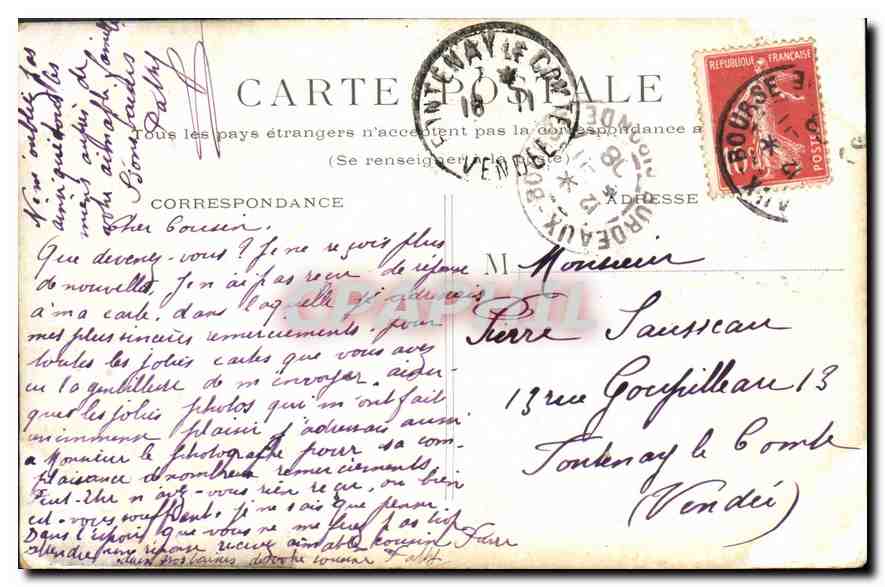 CARTE POSTALE
Tous les pays étrangers n'acceptent pas la correspondance a
(Se renseigner à la poste)
CORRESPONDANCE
ADRESSE
FONTENAY LE COMTE
18 11
VENDÉE
BORDEAUX-BOURSE GIRONDE
REPUBLIQUE FRANÇAISE
POSTES
CRAPHIL
Cher Cousin.
Que devenez-vous? Je ne reçois plus
de nouvelles, J'en ai pas reçu de réponse
à ma carte, dans laquelle j'adressais
mes plus sincères remerciements, pour
toutes les jolies cartes que vous avez
eu la gentillesse de m'envoyer, ainsi
que les jolies photos qui m'ont fait
un immense plaisir j'adressais aussi
a Monsieur le photographe pour sa com
plaisance de nombreux remerciements
Peut-être n'avez-vous rien reçu, ou bien
êtes-vous souffrant, je ne sais que penser
Dans l'espoir que vous ne me ferez pas trop
attendre une réponse recevez aimable cousin Pierre
de votre cousine
N'm'oubliez pas
ainsi que tous les
miens auprès de
votre aimable famille
Bons baisers
M Monsieur
Pierre Sausseau
13 rue Goupilleau 13
Fontenay le Comte
(Vendée)